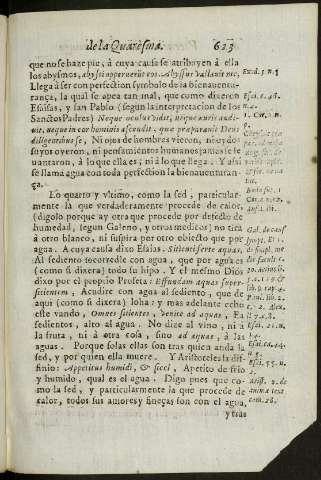 de la Quaresma. 623
que no se haze pie, à cuya causa se atribuyen à ella
los abysmos, abyssi operuerunt eos. Abyssus vallauit me,
Llega à ser con perfection symbolo de la bienauentu-
rança, la qual se apea tan mal, que como dixeron
Esaias, y san Pablo (segun la interpretacion de los
Sanctos Padres) Neque oculus vidit, neque auris audi-
uit, neque in cor hominis ascendit, que præparauit Deus
diligentibus se, Ni ojos de hombres vieron, ni oydos
suyos oyeron, ni pensamientos humanos jamas se le-
uantaron, à lo que ella es; ni à lo que llega. Y assi
se llama agua con toda perfection la bienauenturan-
ça.
Lo quarto y vltimo, como la sed, particular-
mente la que verdaderamente procede de calor,
(digolo porque ay otra que procede por defecto de
humedad, segun Galeno, y otros medicos) no tira
à otro blanco, ni suspira por otro obiecto que por
agua. A cuya causa dixo Esaias. Sitienti ferte aquas,
Al sediento socorredle con agua, que por agua es
(como si dixera) todo su hipo. Y el mesmo Dios
dixo por el proprio Profeta: Effundam aquas super
sitientem, Acudire con agua al sediento, que de
aqui (como si dixera) loha: y mas adelante echo
este vando, Omnes sitientes, venite ad aquas, Ea
sedientos, alto al agua. No dize al vino, ni à
la fruta, ni à otra cosa, sino ad aquas, à las
aguas. Porque solas ellas son tras quien anda la
sed, y por quien ella muere. Y Aristoteles la dif-
finio: Appetitus humidi, & sicci, Apetito de frio
y humido, qual es el agua. Digo pues que co-
mo la sed, y particularmente la que procede de
calor, todos sus amores y finezas son con el agua,
y tras
Exod. 15. n. 5
Esai. 64.
1. Cor. 2.